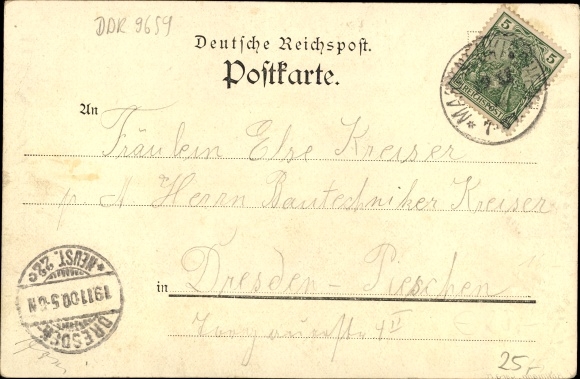 DDR 9659
Deutsche Reichspost.
Postkarte.
An
Fräulein Else Kreiser
p. A Herrn Bautechniker Kreiser
in Dresden-Pieschen
II
5
5
REICHSPOST
DRESDEN
NEUST. 22c
19.11.00.5-6N
25,-